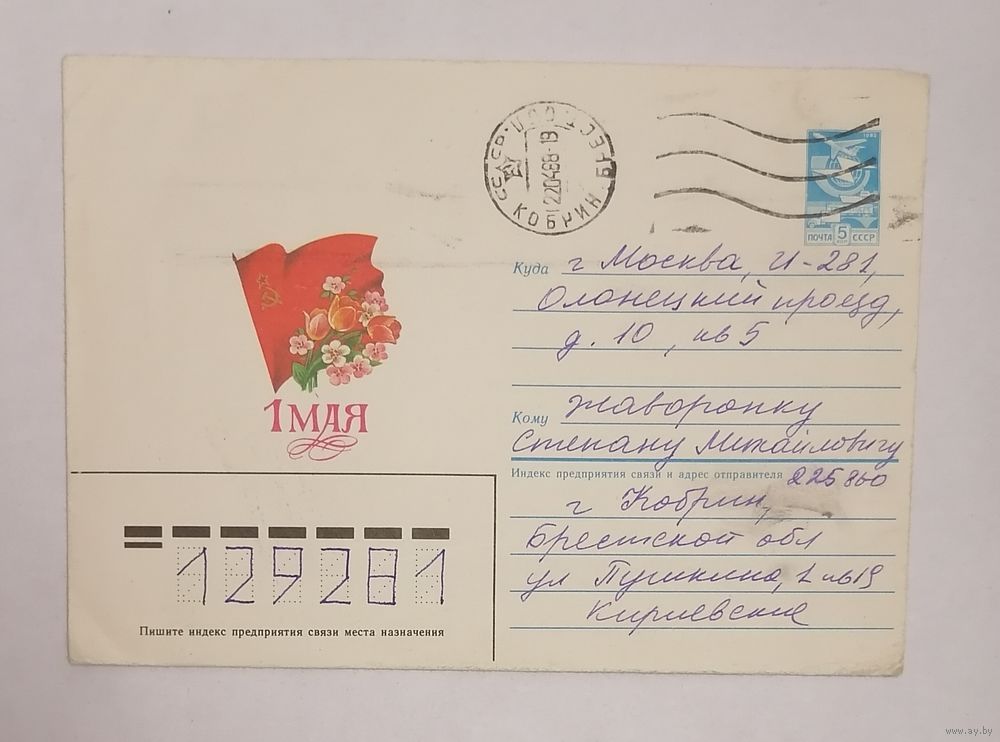 СССР КОБРИН БРЕСТ
220488-19
1982
ПОЧТА 5 КОП СССР
Куда г Москва, И-281,
Олонецкий проезд,
д. 10, кв 5
1 МАЯ
Кому Жаворонку
Степану Михайловичу
Индекс предприятия связи и адрес отправителя 225860
г Кобрин,
Брестской обл
ул Пушкина, 2 кв 19
Кириевские
129281
Пишите индекс предприятия связи места назначения
www.ay.by